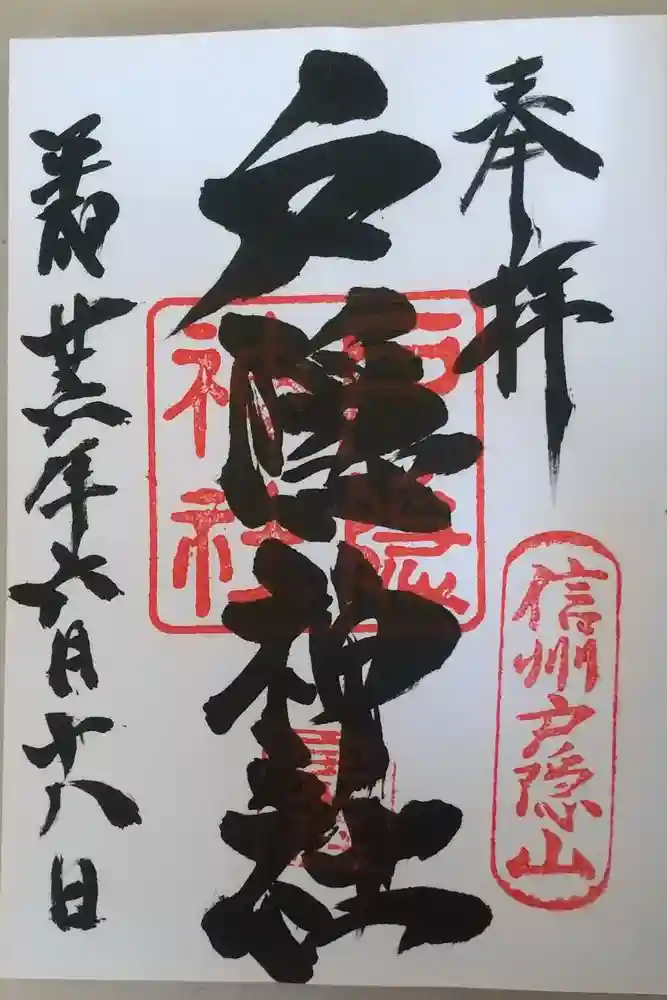 奉拝
信州戸隠山
戸隠神社
戸隠
神社
平成廿六年六月十八日